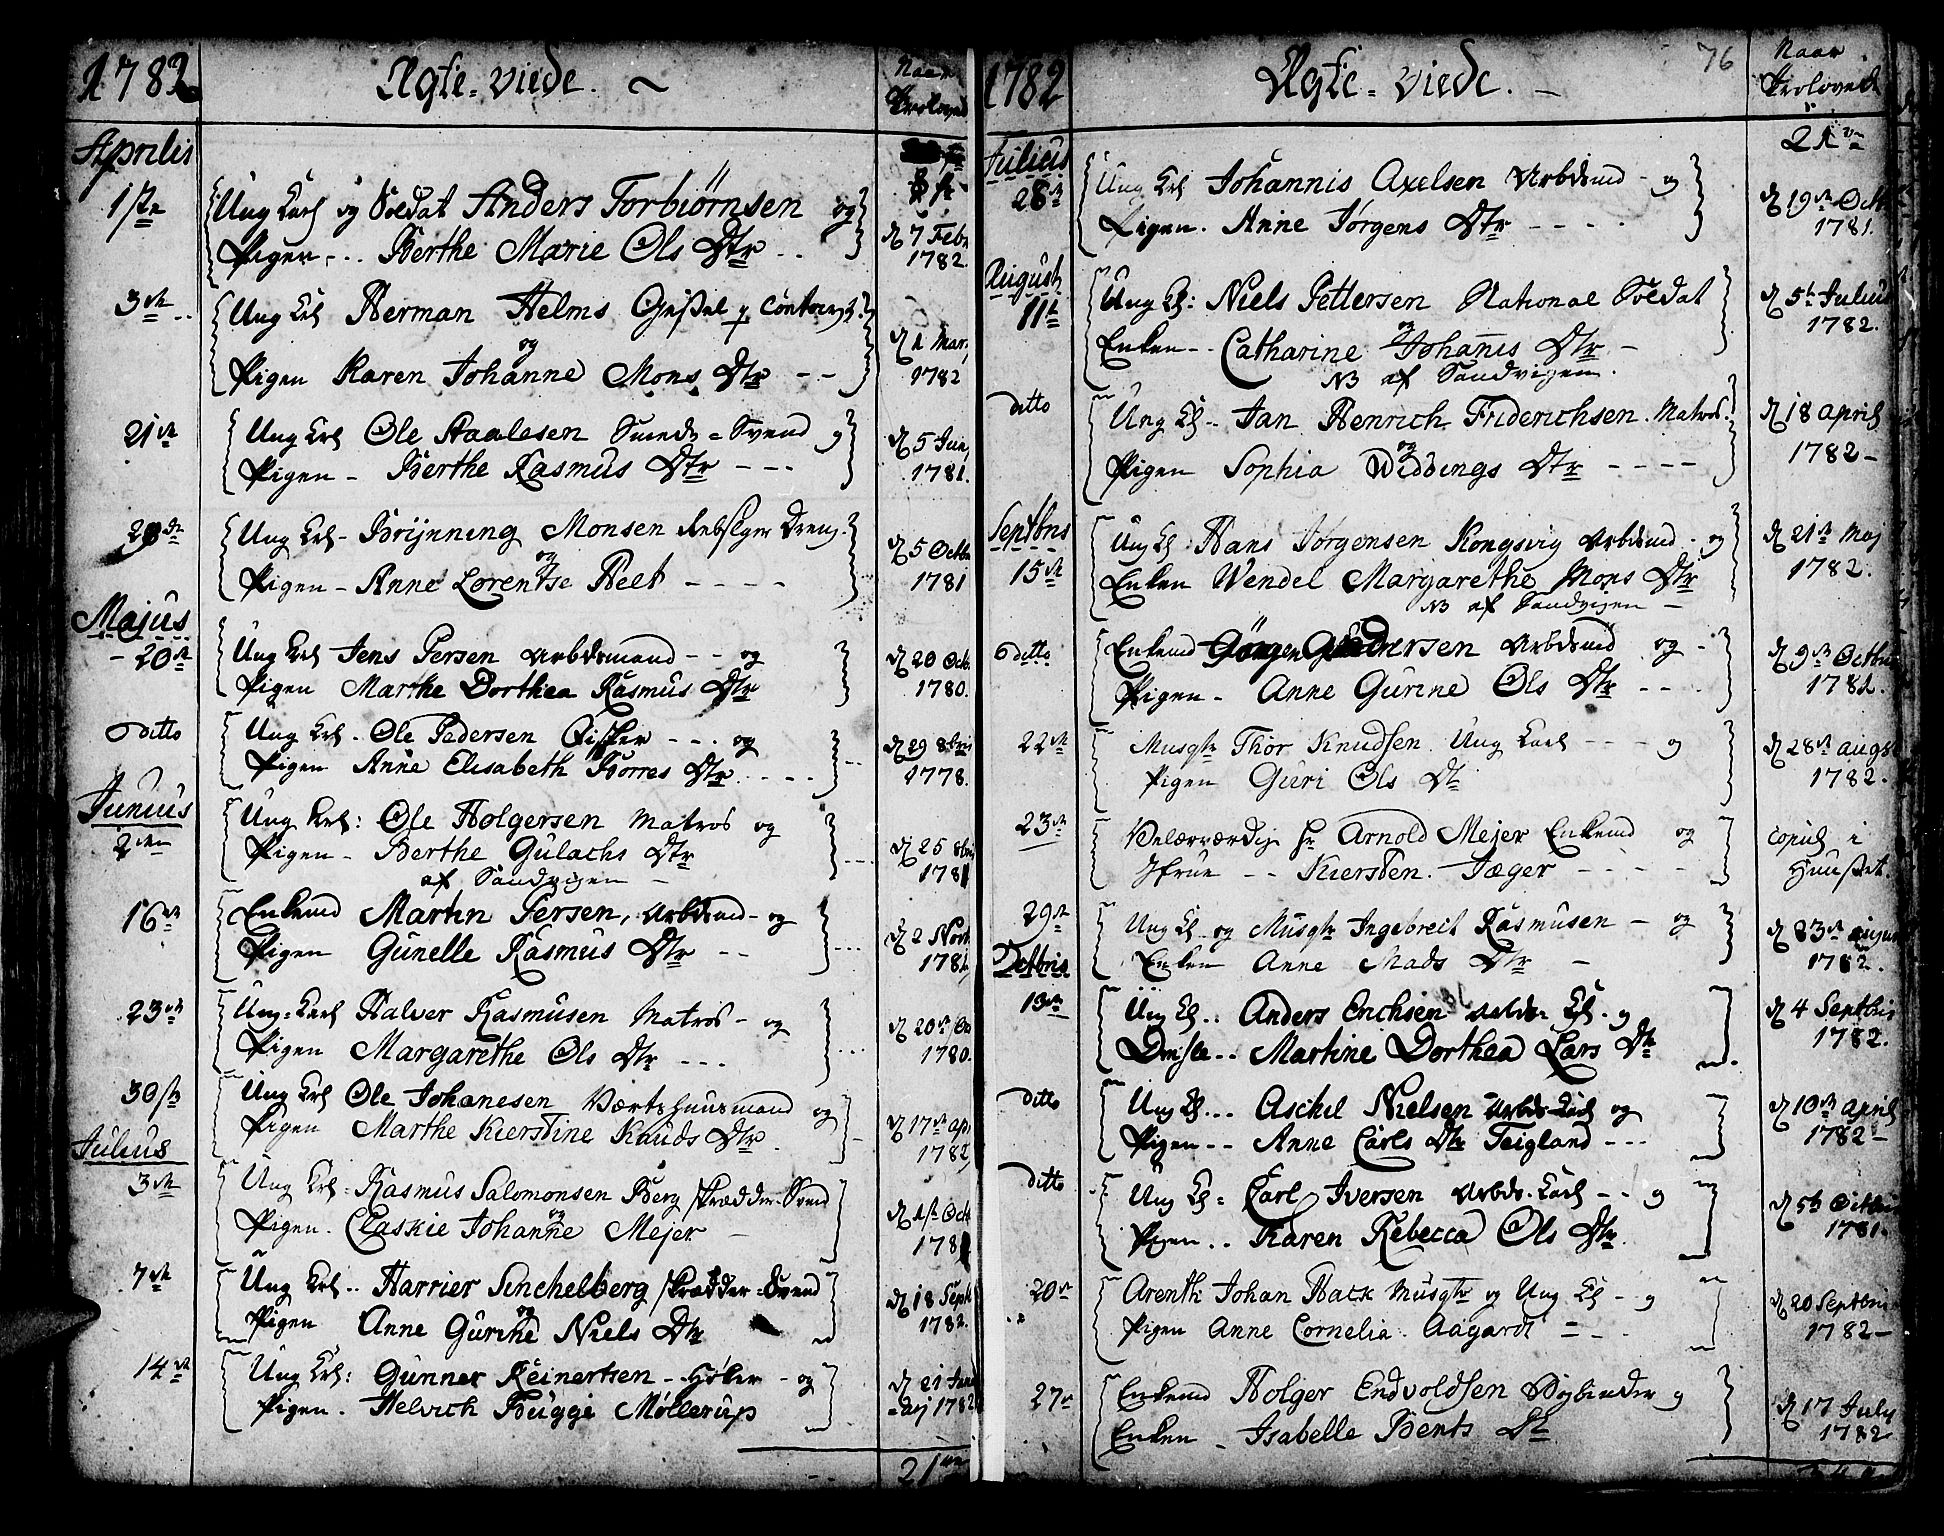 1782 Ægte-viede. ~ Naar
Trolovet
Aprilis
1ste Ung Karl og Soldat Anders Torbiørnsen og
Pigen... Berthe Marie Ols Dtr ..
d 7 Febr
1782.
3die Ung Krl Herman Helms
og
Pigen Karen Johanne Mons Dtr - -
d 1 Mar
1782
21de Ung Krl Ole Staalesen Smede-Svend og
Pigen - Berthe Rasmus Dtr - - -
d 5 Jun
1781.
29de Ung Krl - Brijnning Monsen Rebslger Dreng.
og
Pigen - Anne Lorentse Beet - - - -
d 5 Octb
1781
Majus
- 20de Ung Krl Jens Persen Arbdsmand - - og
Pigen Marthe Dorthea Rasmus Dtr
d 20 Octb.
1780.
ditto Ung Krl. Ole Pedersen Fisker - - - og
Pigen Anne Elisabeth Børres Dtr - - - -
d 29 8bris
1778.
Junius
2den Ung Krl: Ole Holgersen Matros og
Pigen - Berthe Gulachs Dtr
af Sandvigen -
d 25 8bri
1781
16de Enkemd Martin Persen, Arbdsmd - og
Pigen Gunelle Rasmus Dtr - -
d 2 Novb
1781
23de Ung-Karl Halver Rasmusen Matros - og
Pigen Margarethe Ols Dtr - - -
d 20de Oc
1780.
30ste Ung Krl Ole Johanesen Værtshuusmand og
Pigen Marthe Kierstine Knuds Dtr.
d 17de ap
1782
Julius
3die Ung Krl - Rasmus Salomonsen Berg Skrædder-Svend
og
Pigen. Claskie Johanne Mejer -
d 1st Oct
1781
7de Ung Krl.. Harrier Senchelberg Skrædder-Svend
og
Pigen Anne Gurithe Niels Dtr
d 18 Sept
1782.
14de Ung Krl: Gunner Reinertsen - Høker - og
Pigen. Helvich Bugge Møllerup
d 21 Jan
1782
21
1782 Ægte-viede. - 76 Naar
Trolovet
21
Julius
28de Ung Krl Johannis Axelsen Arbdsmd - og
Pigen. Anne Jørgens Dtr - - - -
d 19de Octb
1781.
Augusti
11te Ung Kl: Niels Pettersen National Soldat
og
Enken - - Catharine Johanis Dtr -
NB af Sandvigen.
d 5te Julius
1782.
ditto Ung Kl.. Jan Henrich Friderichsen. Matros.
og
Pigen Sophia Widdings Dtr - - - -
d 18 april
1782 -
Septbris
15de Ung Kl Hans Jørgensen Kongsvig Arbdsmd - og
Enken Wendel Margarethe Mons Dtr
NB af Sandvigen -
d 21de Maj
1782.
ditto Enkemd Gørgen Andersen Arbdsmd og -
Pigen - Anne Gurine Ols Dtr - - -
d 9de Octbri
1782.
22de Musqtr Thor Knudsen. Ung Karl - - - og
Pigen Guri Ols Dtr
d 28de augst
1782.
23de Velærværdig Hr Arnold Mejer Enkemd og
Jfrue - - Kiersten. Jæger - - - -
copul i
Huuset.
29de Ung Kl og Musqtr Ingebreit Rasmusen - og
Enken Anne Mads Dtr -
d 23de august
1782.
Octbris
13de Ung Kl.. Anders Erichsen Arbds- Kl. og
Martine Dorthea Lars Dtr
d 4 Septbri
1782.
ditto Ung Kl... Aschil Nielsen Arbds-Karl og
Pigen - - Anne Carls Dtr Teigland - - -
d 10de april
1782 -
ditto Ung Kl - Carl Iversen Arbds-Karl - - og
Pigen.. Karen Rebecca Ols Dtr.
d 5te Octbri
1781.
20de Arenth Johan Hack Musqtr og Ung Kl - og
Pigen Anne Cornelia. Aagardt = -
d 20 Septbri
1782 -
27de Enkemd Holger Endvoldsen Bogbinder og
Enken - Isabelle Bents Dtr
d 17 July
1782